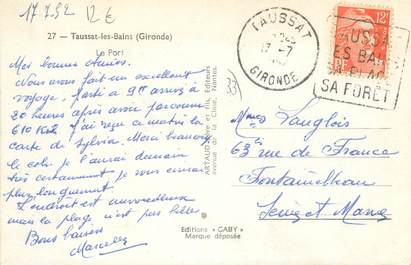 17.7.52 12€
27 - Taussat-les-Bains (Gironde)
Le Port
Mes bonnes Amies.
Nous avons fait un excellent
voyage, parti à 9H arrivés à
20 heures après avoir parcouru
610 Km. J'ai reçu ce matin la
carte de Sylvia. Merci
le colis je l'aurai demain
très certainement je vous écrirai
plus longuement.
L'endroit est merveilleux
mais la plage n'est pas belle
Bons baisers
Marcelle
ARTAUD Père et Fils, Editeurs
avenue de la Close, Nantes.
Editions "GABY"
Marque déposée
33
TAUSSAT
17-7
GIRONDE
12F
RF
TAUSSAT
LES BAINS
SA PLAGE
SA FORÊT
Mmes Langlois
63 rue de France
Fontainebleau
Seine et Marne